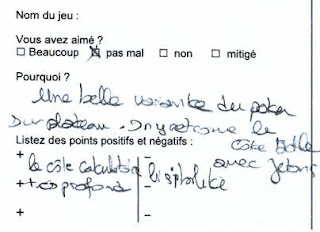 Nom du jeu :
Vous avez aimé ?
☐ Beaucoup ☒ pas mal ☐ non ☐ mitigé
Pourquoi ?
Une belle variante du poker
sur plateau. On y retrouve le
Listez des points positifs et négatifs : côté
avec jetons
+ le côté
+ + profond
+